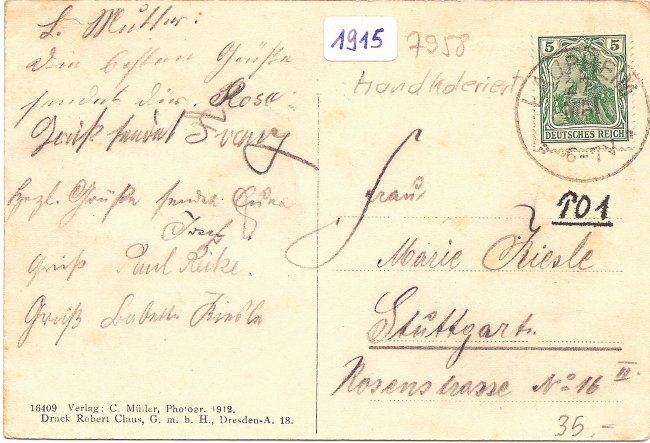 L. Mutter:
Die besten Grüße
sendet dir Rosa
Gruß sendet Franz
Herzl. Grüße sendet Euer
Josef
Gruß Paul Reike.
Gruß Babette Kiesle
16409 Verlag: C. Müller, Photogr. 1912.
Druck Robert Claus, G. m. b. H., Dresden-A. 18.
1915
7958
Handkoloriert
5 5
DEUTSCHES REICH
LAUPHEIM
6-7
Frau
P01
Marie Kiesle
Stuttgart.
Rosenstrasse No 16 III
35,-